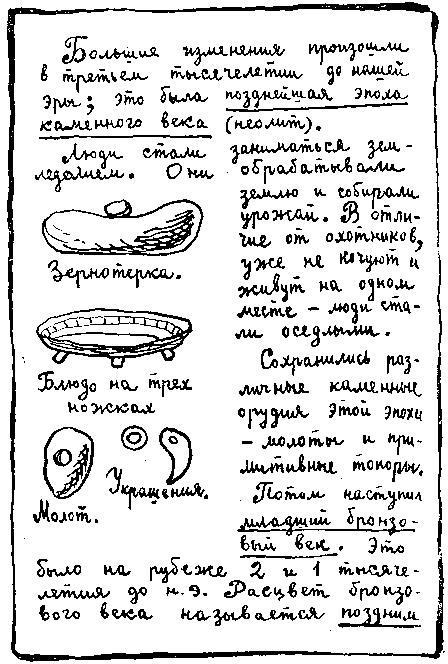 Большие изменения произошли
в третьем тысячелетии до нашей
эры; это была позднейшая эпоха
каменного века (неолит).
Люди стали заниматься зем-
леделием. Они обрабатывали
землю и собирали
урожай. В отли-
чие от охотников,
уже не кочуют и
живут на одном
месте – люди ста-
ли оседлыми.
Зернотерка.
Блюдо на трех
ножках
Украшения.
Молот.
Сохранились раз-
личные каменные
орудия этой эпохи
– молоты и при-
митивные топоры.
Потом наступил
младший бронзо-
вый век. Это
было на рубеже 2 и 1 тысяче-
летия до н.э. Расцвет бронзо-
вого века называется поздним